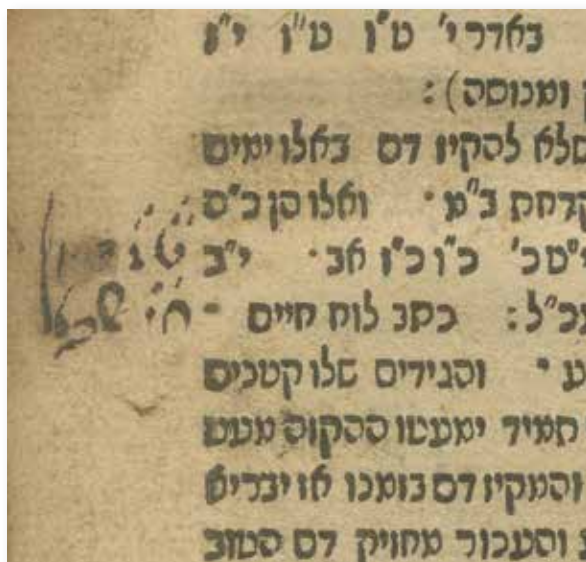 באדר י' ט"ו ט"ז י"ז
ומנוסה):
שלא להקיז דם באלו ימים
קדחת ב"מ · ואלו הן כ"ס
כ' כ"ו כ"ז אב · י"ב
כתב לוח חיים ·
והגידים שלו קטנים
תמיד ימעטו ההקזה מעט
והמקיז דם בזמנו או יבריא
והעכור מחזיק דם הטוב